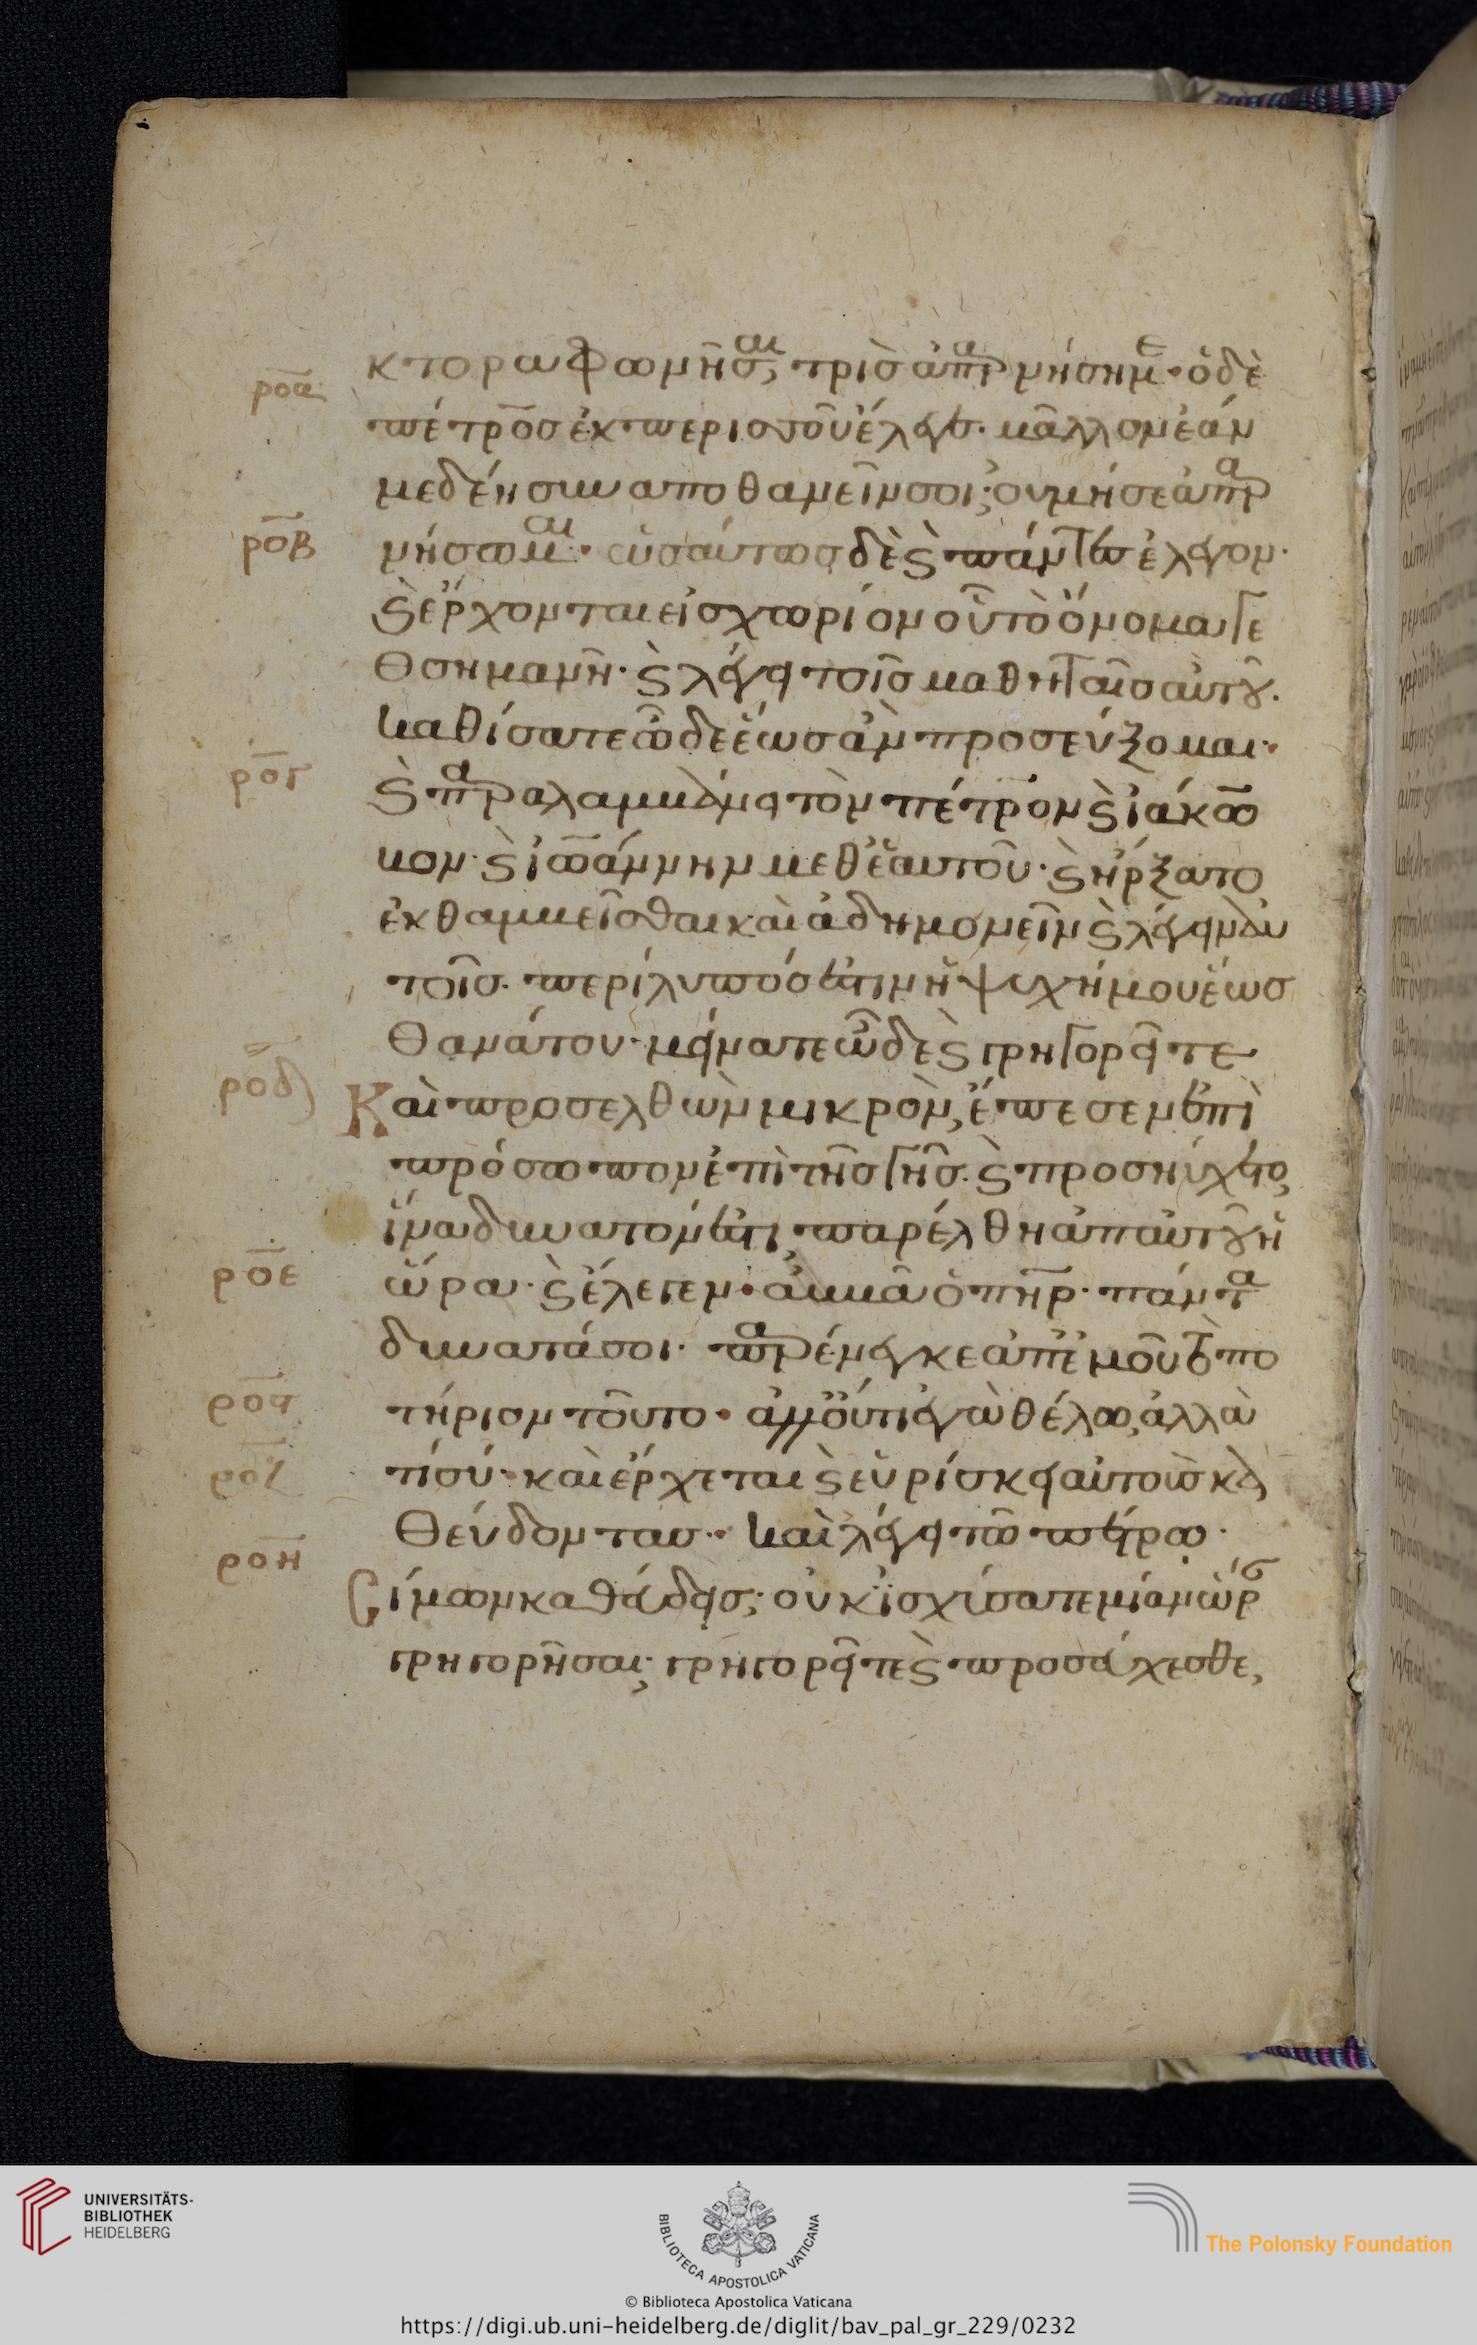 κτορα φωνῆσαι, τρὶς ἀπαρνήσῃ με· ὁ δὲ
ροα
πέτρος ἐκ περισσοῦ ἔλεγε· μᾶλλον ἐάν
με δέη συναποθανεῖν σοι, οὐ μή σε ἀπαρ
ροβ
νήσωμαι· ὡσαύτως δὲ ϗ πάντες ἔλεγον·
ϗ ἔρχονται εἰς χωρίον οὗ τὸ ὄνομα γε
θσημανῆ· ϗ λέγει τοῖς μαθηταῖς αὐτοῦ·
καθίσατε ὧδε ἕως ἂν προσεύξομαι·
ρογ
ϗ παραλαμβάνει τὸν πέτρον ϗ ἰάκω
βον· ϗ ἰωάννην μεθ' ἑαυτοῦ· ϗ ἤρξατο
ἐκθαμβεῖσθαι καὶ ἀδημονεῖν ϗ λέγει αὐ
τοῖς· περίλυπός ἐστιν ἡ ψυχή μου ἕως
θανάτου· μείνατε ὧδε ϗ γρηγορεῖτε
ροδ
Καὶ προσελθὼν μικρὸν, ἔπεσεν ἐπὶ
πρόσωπον ἐπὶ τῆς γῆς· ϗ προσηύχετο,
ἵνα δυνατόν ἐστι, παρέλθη ἀπ' αὐτοῦ ἡ
ροε
ὥρα· ϗ ἔλεγεν· ἀββᾶ ὁ πηρ· πάντα
δυνατά σοι· παρένεγκε ἀπ' ἐμοῦ τὸ πο
ροϛ
τήριον τοῦτο· ἀλλ' οὔ τι ἐγὼ θέλω, ἀλλὰ
ροζ
τί σύ· καὶ ἔρχεται ϗ εὑρίσκει αὐτοὺς κα
θεύδοντας· καὶ λέγει τῶ πέτρω·
ροη
Σίμων καθεύδεις; οὐκ ἰσχύσατε μίαν ὥραν
γρηγορῆσαι; γρηγορεῖτε ϗ προσεύχεσθε,
UNIVERSITÄTS-
BIBLIOTHEK
HEIDELBERG
BIBLIOTECA APOSTOLICA VATICANA
The Polonsky Foundation
© Biblioteca Apostolica Vaticana
https://digi.ub.uni-heidelberg.de/diglit/bav_pal_gr_229/0232